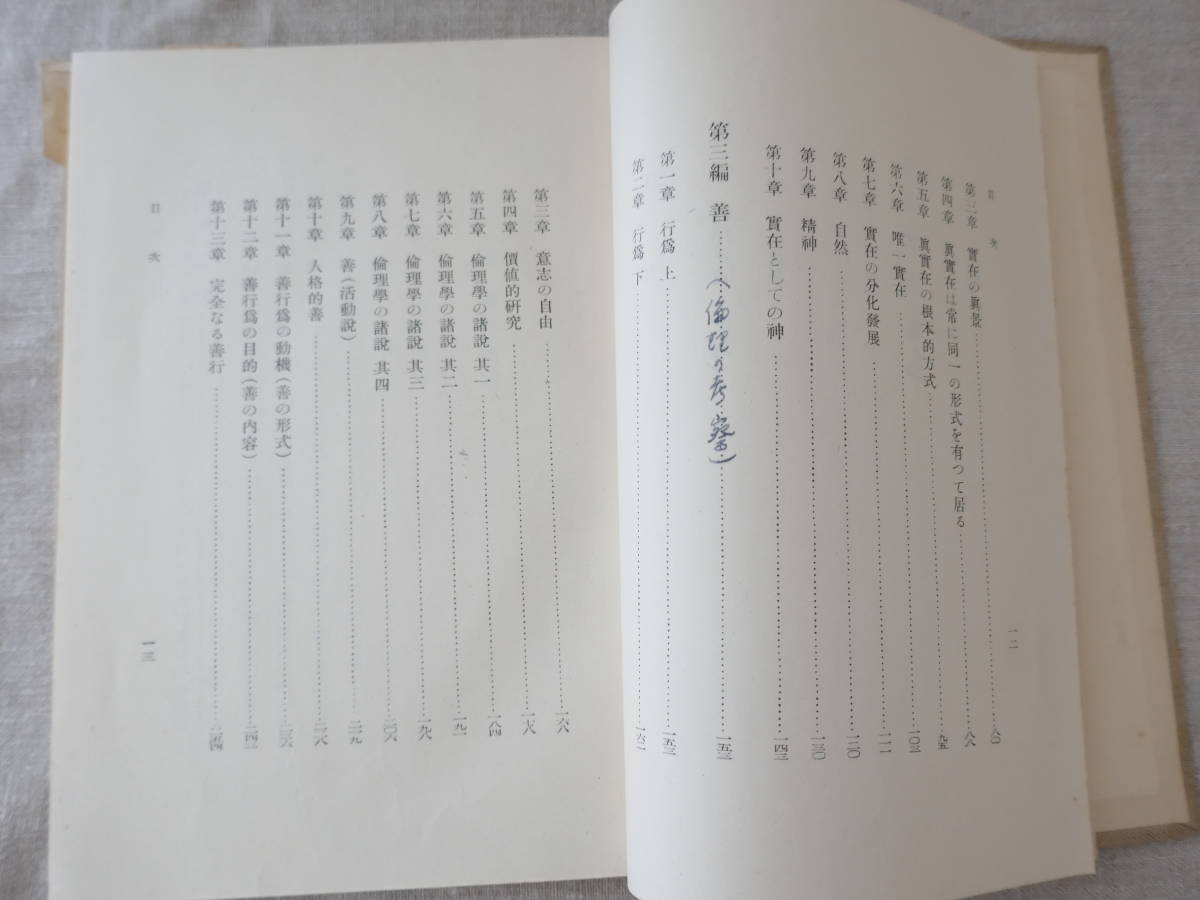 目次
第三章 實在の眞景……八〇
第四章 眞實在は常に同一の形式を有つて居る……八八
第五章 眞實在の根本的方式……九五
第六章 唯一實在……一〇三
第七章 實在の分化發展……一一一
第八章 自然……一二〇
第九章 精神……一三〇
第十章 實在としての神……一四三
第三編 善……(倫理の考察)……一五三
第一章 行爲 上……一五三
第二章 行爲 下……一六二
一二
第三章 意志の自由……一六八
第四章 價値的硏究……一七八
第五章 倫理學の諸說 其一……一八四
第六章 倫理學の諸說 其二……一九一
第七章 倫理學の諸說 其三……一九八
第八章 倫理學の諸說 其四……二〇六
第九章 善(活動說)……二一九
第十章 人格的善……二二八
第十一章 善行爲の動機(善の形式)……二三六
第十二章 善行爲の目的(善の內容)……二四二
第十三章 完全なる善行……二五四
目次
一三